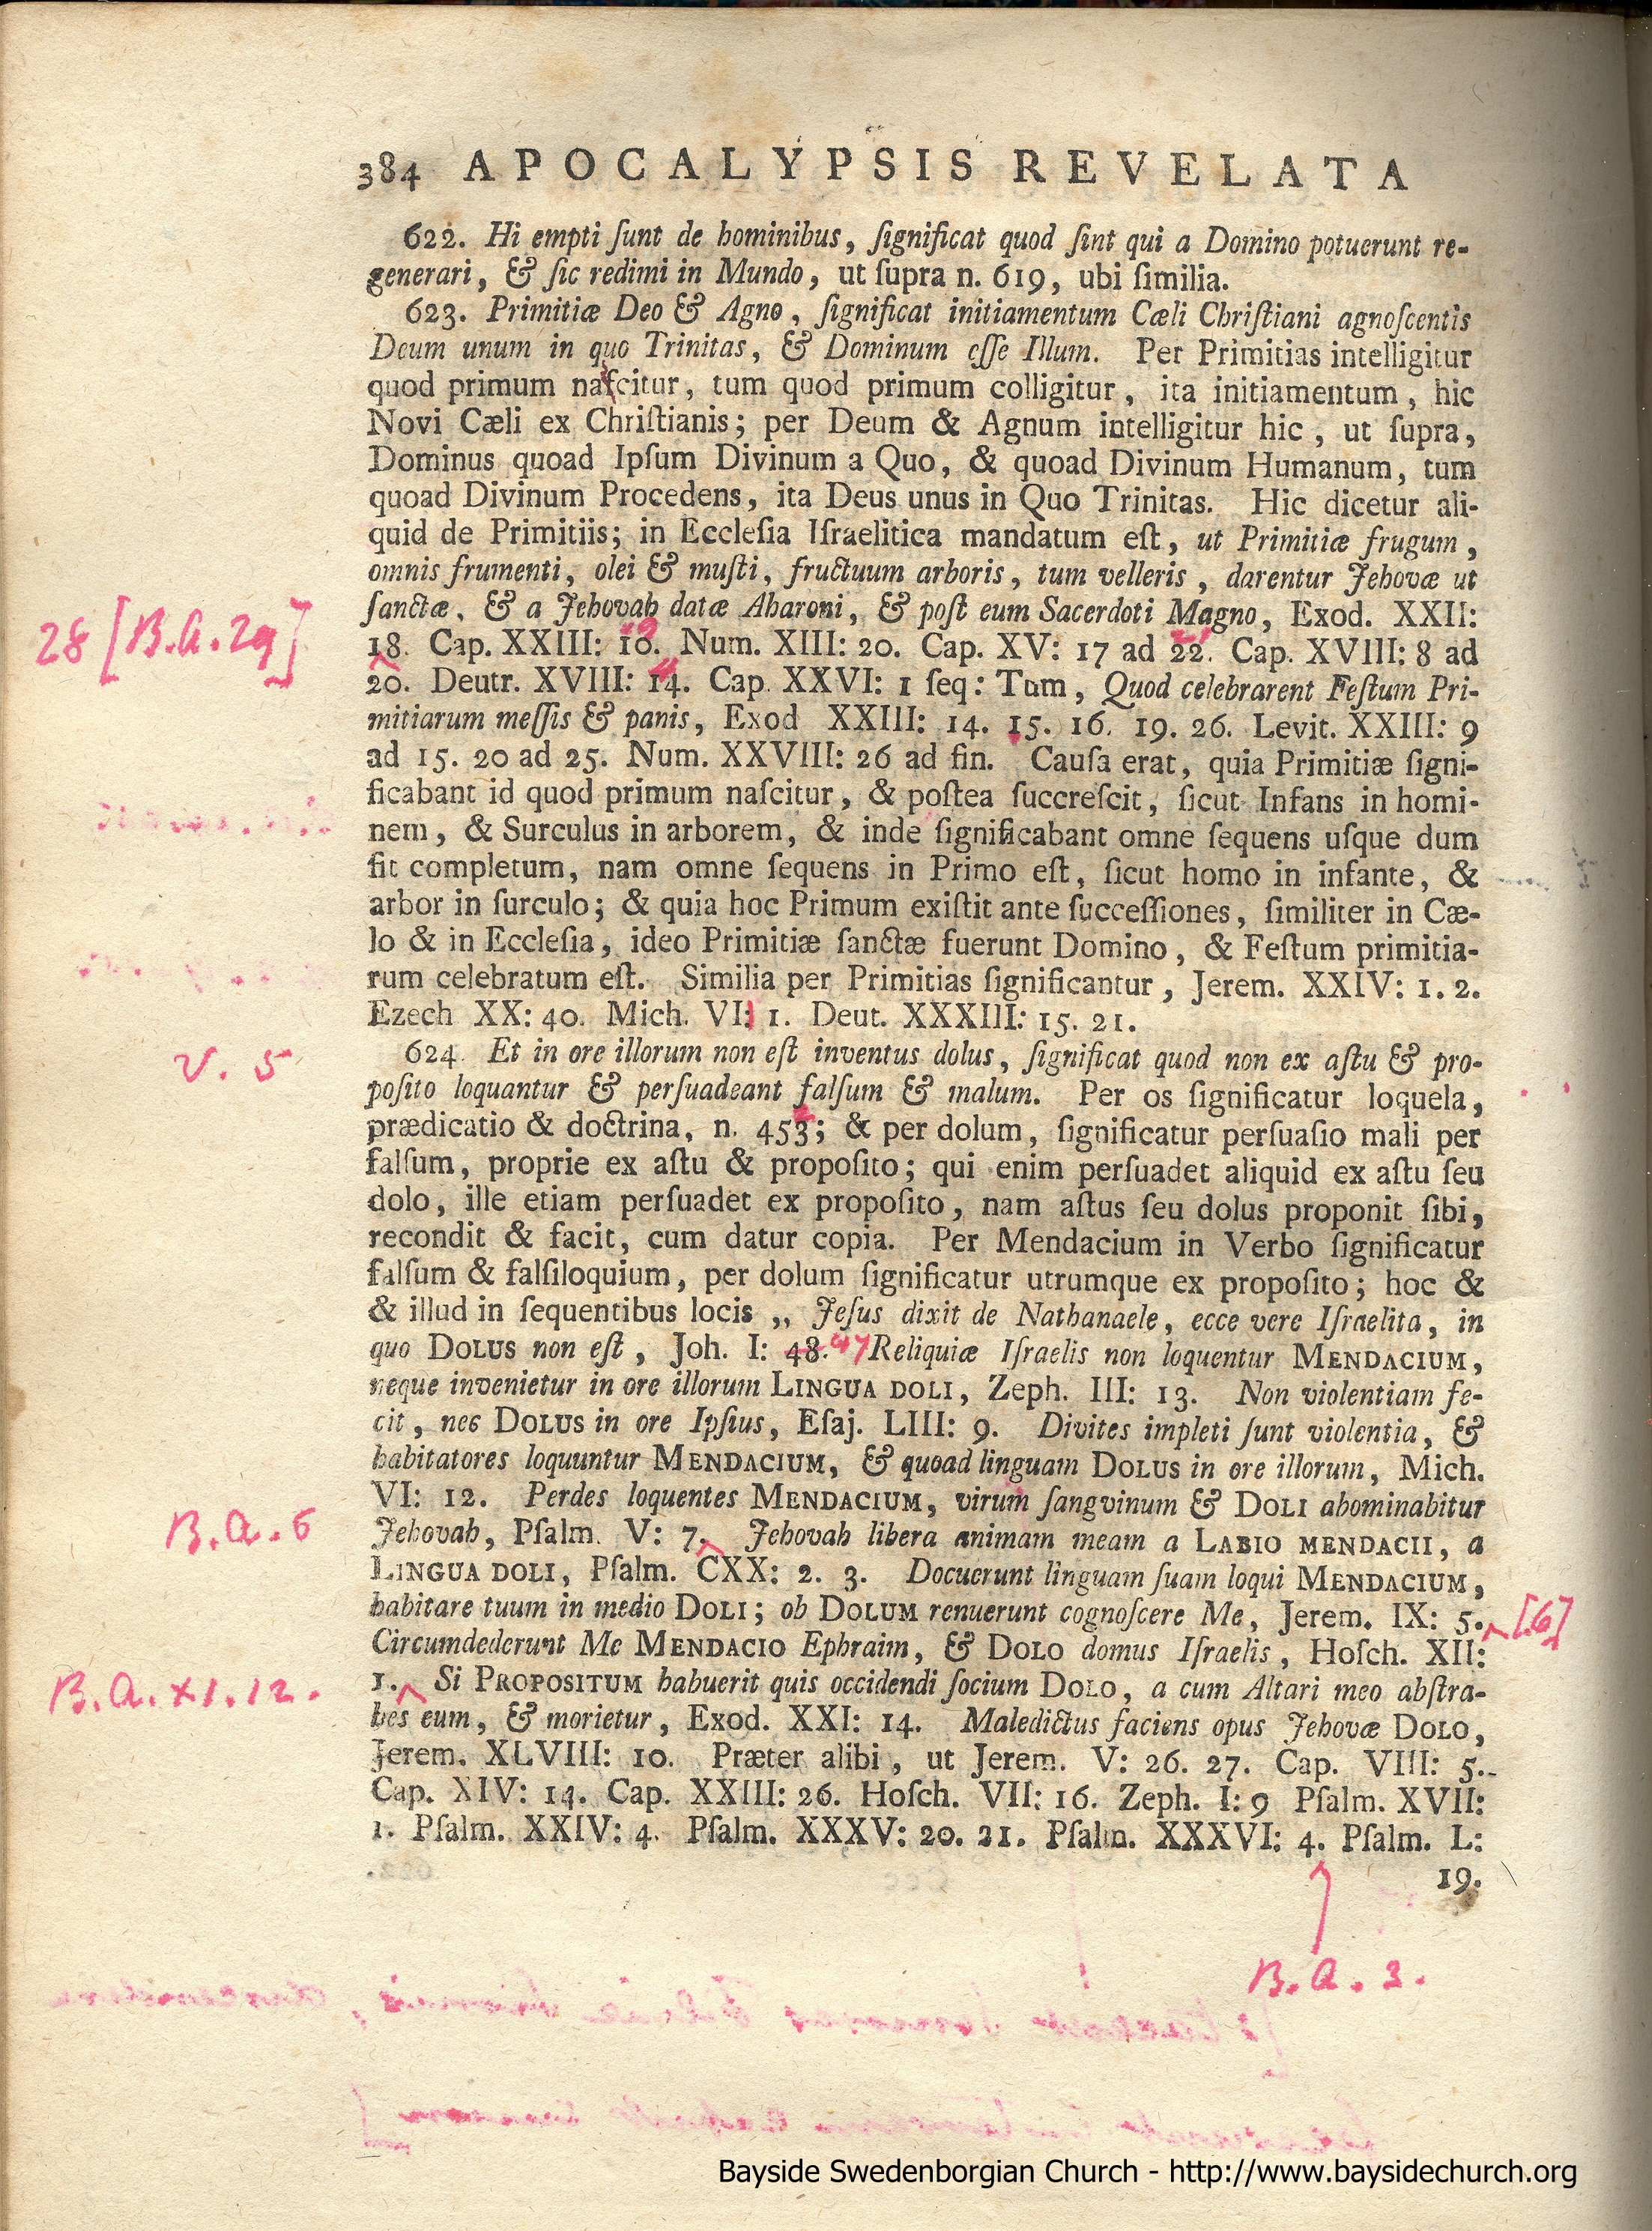 384 APOCALYPSIS REVELATA
622. Hi empti ſunt de hominibus, ſignificat quod ſint qui a Domino potuerunt re-
generari, & ſic redimi in Mundo, ut ſupra n. 619, ubi ſimilia.
623. Primitiæ Deo & Agno, ſignificat initiamentum Cæli Chriſtiani agnoſcentis
Deum unum in quo Trinitas, & Dominum eſſe Illum. Per Primitias intelligitur
quod primum naſcitur, tum quod primum colligitur, ita initiamentum, hic
Novi Cæli ex Chriſtianis; per Deum & Agnum intelligitur hic, ut ſupra,
Dominus quoad Ipſum Divinum a Quo, & quoad Divinum Humanum, tum
quoad Divinum Procedens, ita Deus unus in Quo Trinitas. Hic dicetur ali-
quid de Primitiis; in Eccleſia Iſraelitica mandatum eſt, ut Primitiæ frugum,
omnis frumenti, olei & muſti, fructuum arboris, tum velleris, darentur Jehovæ ut
ſanctæ, & a Jehovah datæ Aharoni, & poſt eum Sacerdoti Magno, Exod. XXII:
28 [B.A. 29]
18. Cap. XXIII: 10. Num. XIII: 20. Cap. XV: 17 ad 22. Cap. XVIII: 8 ad
20. Deutr. XVIII: 14. Cap. XXVI: 1 ſeq: Tum, Quod celebrarent Feſtum Pri-
mitiarum meſſis & panis, Exod XXIII: 14. 15. 16. 19. 26. Levit. XXIII: 9
ad 15. 20 ad 25. Num. XXVIII: 26 ad fin. Cauſa erat, quia Primitiæ ſigni-
ficabant id quod primum naſcitur, & poſtea ſuccreſcit, ſicut Infans in homi-
nem, & Surculus in arborem, & inde ſignificabant omne ſequens uſque dum
fit completum, nam omne ſequens in Primo eſt, ſicut homo in infante, &
arbor in ſurculo; & quia hoc Primum exiſtit ante ſucceſſiones, ſimiliter in Cæ-
lo & in Eccleſia, ideo Primitiæ ſanctæ fuerunt Domino, & Feſtum primitia-
rum celebratum eſt. Similia per Primitias ſignificantur, Jerem. XXIV: 1. 2.
Ezech XX: 40. Mich. VI: 1. Deut. XXXIII: 15. 21.
V. 5
624. Et in ore illorum non eſt inventus dolus, ſignificat quod non ex aſtu & pro-
poſito loquantur & perſuadeant falſum & malum. Per os ſignificatur loquela,
prædicatio & doctrina, n. 453; & per dolum, ſignificatur perſuaſio mali per
falſum, proprie ex aſtu & propoſito; qui enim perſuadet aliquid ex aſtu ſeu
dolo, ille etiam perſuadet ex propoſito, nam aſtus ſeu dolus proponit ſibi,
recondit & facit, cum datur copia. Per Mendacium in Verbo ſignificatur
falſum & falſiloquium, per dolum ſignificatur utrumque ex propoſito; hoc &
& illud in ſequentibus locis ,, Jeſus dixit de Nathanaele, ecce vere Iſraelita, in
quo DOLUS non eſt, Joh. I: 48. 47 Reliquiæ Iſraelis non loquentur MENDACIUM,
neque invenietur in ore illorum LINGUA DOLI, Zeph. III: 13. Non violentiam fe-
cit, nec DOLUS in ore Ipſius, Eſaj. LIII: 9. Divites impleti ſunt violentia, &
habitatores loquuntur MENDACIUM, & quoad linguam DOLUS in ore illorum, Mich.
VI: 12. Perdes loquentes MENDACIUM, virum ſangvinum & DOLI abominabitur
B.A. 6
Jehovah, Pſalm. V: 7. Jehovah libera animam meam a LABIO MENDACII, a
LINGUA DOLI, Pſalm. CXX: 2. 3. Docuerunt linguam ſuam loqui MENDACIUM,
habitare tuum in medio DOLI; ob DOLUM renuerunt cognoſcere Me, Jerem. IX: 5. [6]
Circumdederunt Me MENDACIO Ephraim, & DOLO domus Iſraelis, Hoſch. XII:
B.A. XI. 12.
1. Si PROPOSITUM habuerit quis occidendi ſocium DOLO, a cum Altari meo abſtra-
hes eum, & morietur, Exod. XXI: 14. Maledictus faciens opus Jehovæ DOLO,
Jerem. XLVIII: 10. Præter alibi, ut Jerem. V: 26. 27. Cap. VIII: 5.
Cap. XIV: 14. Cap. XXIII: 26. Hoſch. VII: 16. Zeph. I: 9 Pſalm. XVII:
1. Pſalm. XXIV: 4. Pſalm. XXXV: 20. 21. Pſalm. XXXVI: 4. Pſalm. L:
19.
B.A. 3.
Bayside Swedenborgian Church - http://www.baysidechurch.org